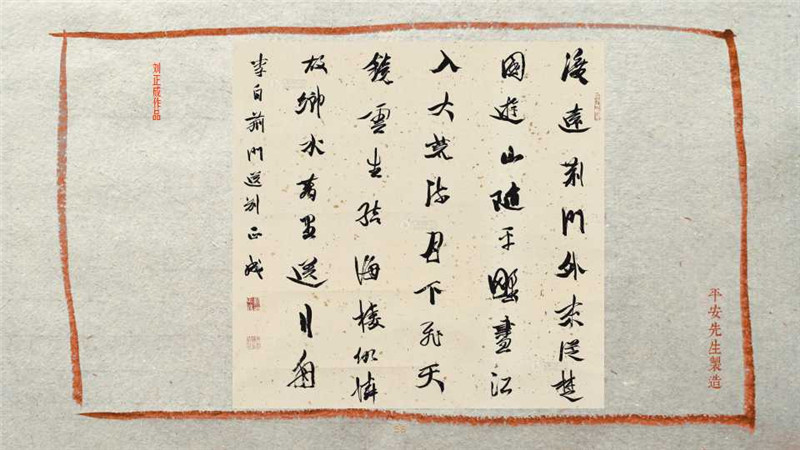 渡遠荆門外來從楚
國遊山隨平野盡江
入大荒流月下飛天
鏡雲生結海樓仍憐
故鄉水萬里送行舟
李白荆門送別正成
刘正成作品
平安先生製造